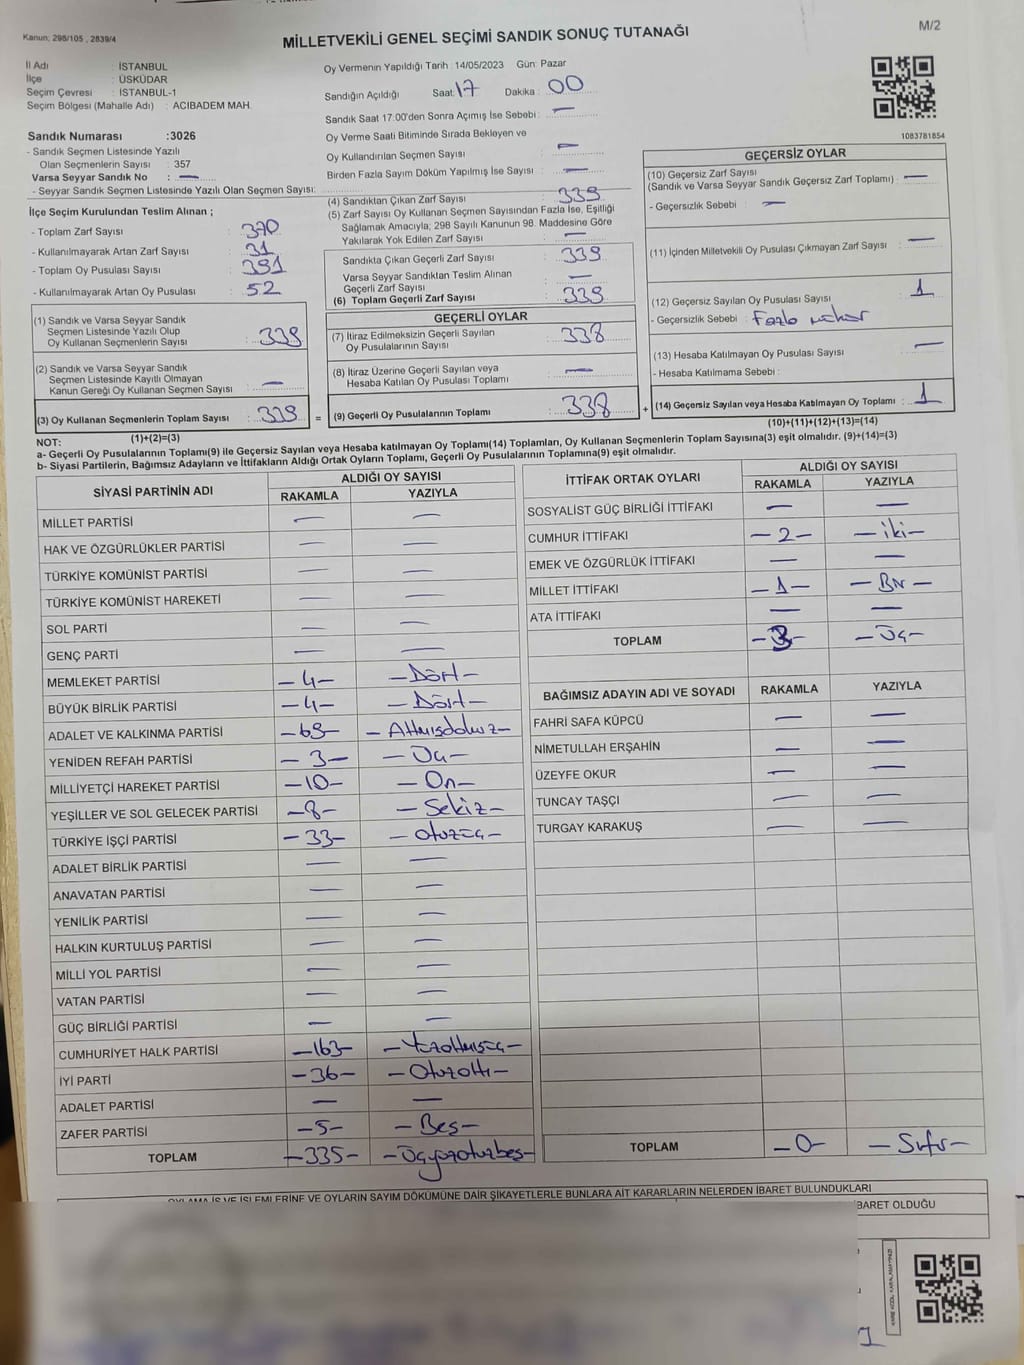 Kanun: 298/105 , 2839/4
MİLLETVEKİLİ GENEL SEÇİMİ SANDIK SONUÇ TUTANAĞI
M/2
İl Adı : İSTANBUL
İlçe : ÜSKÜDAR
Seçim Çevresi : İSTANBUL-1
Seçim Bölgesi (Mahalle Adı) : ACIBADEM MAH.
Sandık Numarası :3026
- Sandık Seçmen Listesinde Yazılı
Olan Seçmenlerin Sayısı : 357
Varsa Seyyar Sandık No : —
- Seyyar Sandık Seçmen Listesinde Yazılı Olan Seçmen Sayısı:
Oy Vermenin Yapıldığı Tarih : 14/05/2023 Gün: Pazar
Sandığın Açıldığı Saat: 17 Dakika : 00
Sandık Saat 17:00'den Sonra Açımış İse Sebebi : —
Oy Verme Saati Bitiminde Sırada Bekleyen ve
Oy Kullandırılan Seçmen Sayısı : —
Birden Fazla Sayım Döküm Yapılmış İse Sayısı : —
1083781854
İlçe Seçim Kurulundan Teslim Alınan ;
- Toplam Zarf Sayısı : 370
- Kullanılmayarak Artan Zarf Sayısı : 31
- Toplam Oy Pusulası Sayısı : 391
- Kullanılmayarak Artan Oy Pusulası : 52
(1) Sandık ve Varsa Seyyar Sandık
Seçmen Listesinde Yazılı Olup
Oy Kullanan Seçmenlerin Sayısı : 339
(2) Sandık ve Varsa Seyyar Sandık
Seçmen Listesinde Kayıtlı Olmayan
Kanun Gereği Oy Kullanan Seçmen Sayısı : —
(3) Oy Kullanan Seçmenlerin Toplam Sayısı : 339 =
(1)+(2)=(3)
(4) Sandıktan Çıkan Zarf Sayısı : 339
(5) Zarf Sayısı Oy Kullanan Seçmen Sayısından Fazla İse, Eşitliği
Sağlamak Amacıyla; 298 Sayılı Kanunun 98. Maddesine Göre
Yakılarak Yok Edilen Zarf Sayısı : —
Sandıkta Çıkan Geçerli Zarf Sayısı : 339
Varsa Seyyar Sandıktan Teslim Alınan
Geçerli Zarf Sayısı : —
(6) Toplam Geçerli Zarf Sayısı : 339
GEÇERLİ OYLAR
(7) İtiraz Edilmeksizin Geçerli Sayılan
Oy Pusulalarının Sayısı : 338
(8) İtiraz Üzerine Geçerli Sayılan veya
Hesaba Katılan Oy Pusulası Toplamı : —
(9) Geçerli Oy Pusulalarının Toplamı : 338 +
GEÇERSİZ OYLAR
(10) Geçersiz Zarf Sayısı
(Sandık ve Varsa Seyyar Sandık Geçersiz Zarf Toplamı) : —
- Geçersizlik Sebebi : —
(11) İçinden Milletvekili Oy Pusulası Çıkmayan Zarf Sayısı : —
(12) Geçersiz Sayılan Oy Pusulası Sayısı : 1
- Geçersizlik Sebebi : Fazla mühür
(13) Hesaba Katılmayan Oy Pusulası Sayısı : —
- Hesaba Katılmama Sebebi :
(14) Geçersiz Sayılan veya Hesaba Katılmayan Oy Toplamı : 1
(10)+(11)+(12)+(13)=(14)
NOT:
a- Geçerli Oy Pusulalarının Toplamı(9) ile Geçersiz Sayılan veya Hesaba katılmayan Oy Toplamı(14) Toplamları, Oy Kullanan Seçmenlerin Toplam Sayısına(3) eşit olmalıdır. (9)+(14)=(3)
b- Siyasi Partilerin, Bağımsız Adayların ve İttifakların Aldığı Ortak Oyların Toplamı, Geçerli Oy Pusulalarının Toplamına(9) eşit olmalıdır.
SİYASİ PARTİNİN ADI ALDIĞI OY SAYISI
RAKAMLA YAZIYLA
MİLLET PARTİSİ — —
HAK VE ÖZGÜRLÜKLER PARTİSİ — —
TÜRKİYE KOMÜNİST PARTİSİ — —
TÜRKİYE KOMÜNİST HAREKETİ — —
SOL PARTİ — —
GENÇ PARTİ — —
MEMLEKET PARTİSİ -4- -Dört-
BÜYÜK BİRLİK PARTİSİ -4- -Dört-
ADALET VE KALKINMA PARTİSİ -69- -Altmışdokuz-
YENİDEN REFAH PARTİSİ -3- -Üç-
MİLLİYETÇİ HAREKET PARTİSİ -10- -On-
YEŞİLLER VE SOL GELECEK PARTİSİ -8- -Sekiz-
TÜRKİYE İŞÇİ PARTİSİ -33- -Otuzüç-
ADALET BİRLİK PARTİSİ — —
ANAVATAN PARTİSİ — —
YENİLİK PARTİSİ — —
HALKIN KURTULUŞ PARTİSİ — —
MİLLİ YOL PARTİSİ — —
VATAN PARTİSİ — —
GÜÇ BİRLİĞİ PARTİSİ — —
CUMHURİYET HALK PARTİSİ -163- -Yüzaltmışüç-
İYİ PARTİ -36- -Otuzaltı-
ADALET PARTİSİ — —
ZAFER PARTİSİ -5- -Beş-
TOPLAM -335- -Üçyüzotuzbeş-
İTTİFAK ORTAK OYLARI ALDIĞI OY SAYISI
RAKAMLA YAZIYLA
SOSYALİST GÜÇ BİRLİĞİ İTTİFAKI — —
CUMHUR İTTİFAKI -2- -iki-
EMEK VE ÖZGÜRLÜK İTTİFAKI — —
MİLLET İTTİFAKI -1- -Bir-
ATA İTTİFAKI — —
TOPLAM -3- -Üç-
BAĞIMSIZ ADAYIN ADI VE SOYADI RAKAMLA YAZIYLA
FAHRİ SAFA KÜPCÜ — —
NİMETULLAH ERŞAHİN — —
ÜZEYFE OKUR — —
TUNCAY TAŞÇI — —
TURGAY KARAKUŞ — —
TOPLAM -0- -Sıfır-
OYLAMA İŞ VE İŞLEMLERİNE VE OYLARIN SAYIM DÖKÜMÜNE DAİR ŞİKAYETLERLE BUNLARA AİT KARARLARIN NELERDEN İBARET BULUNDUKLARI
İBARET OLDUĞU